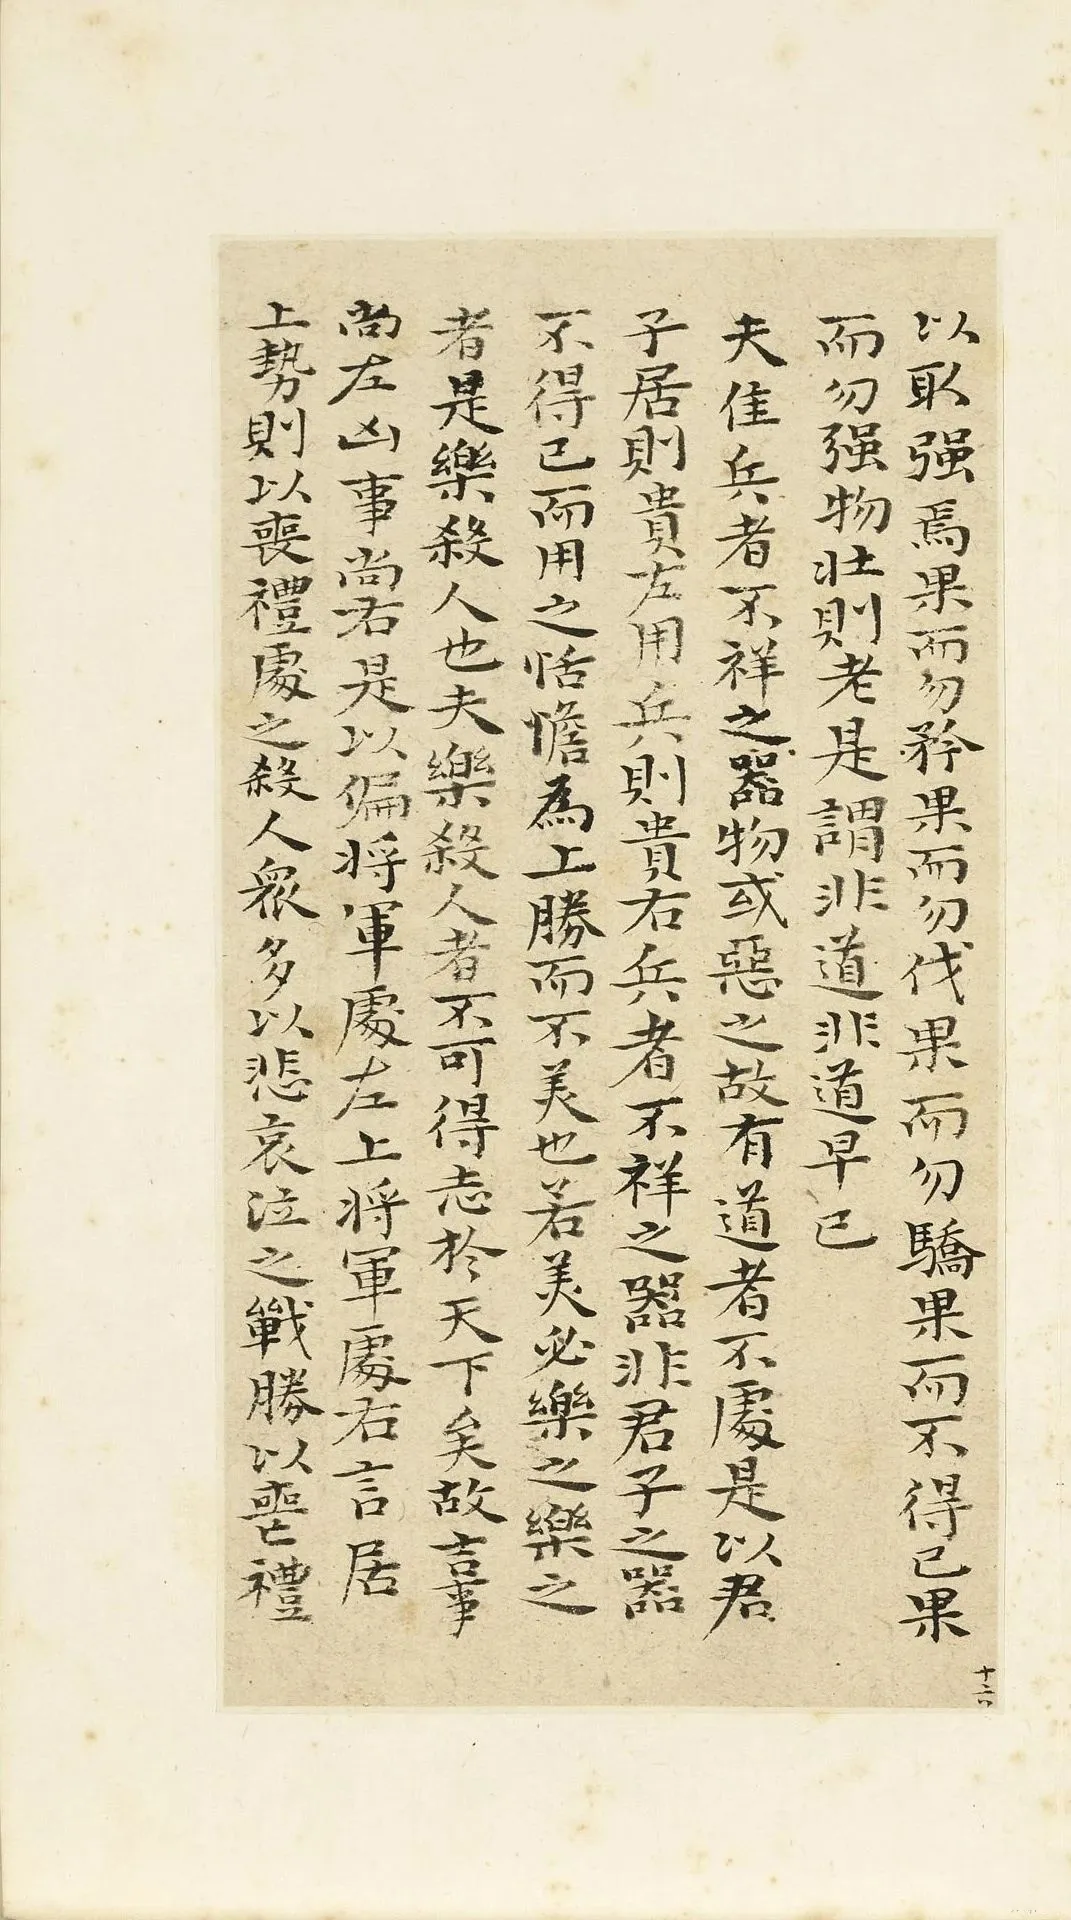 以取强焉果而勿矜果而勿伐果而勿驕果而不得已果
而勿强物壯則老是謂非道非道早已
夫佳兵者不祥之器物或惡之故有道者不處是以君
子居則貴左用兵則貴右兵者不祥之器非君子之器
不得已而用之恬憺為上勝而不美也若美必樂之樂之
者是樂殺人也夫樂殺人者不可得志於天下矣故吉事
尚左凶事尚右是以偏将軍處左上将軍處右言居
上勢則以喪禮處之殺人衆多以悲哀泣之戰勝以喪禮
十六